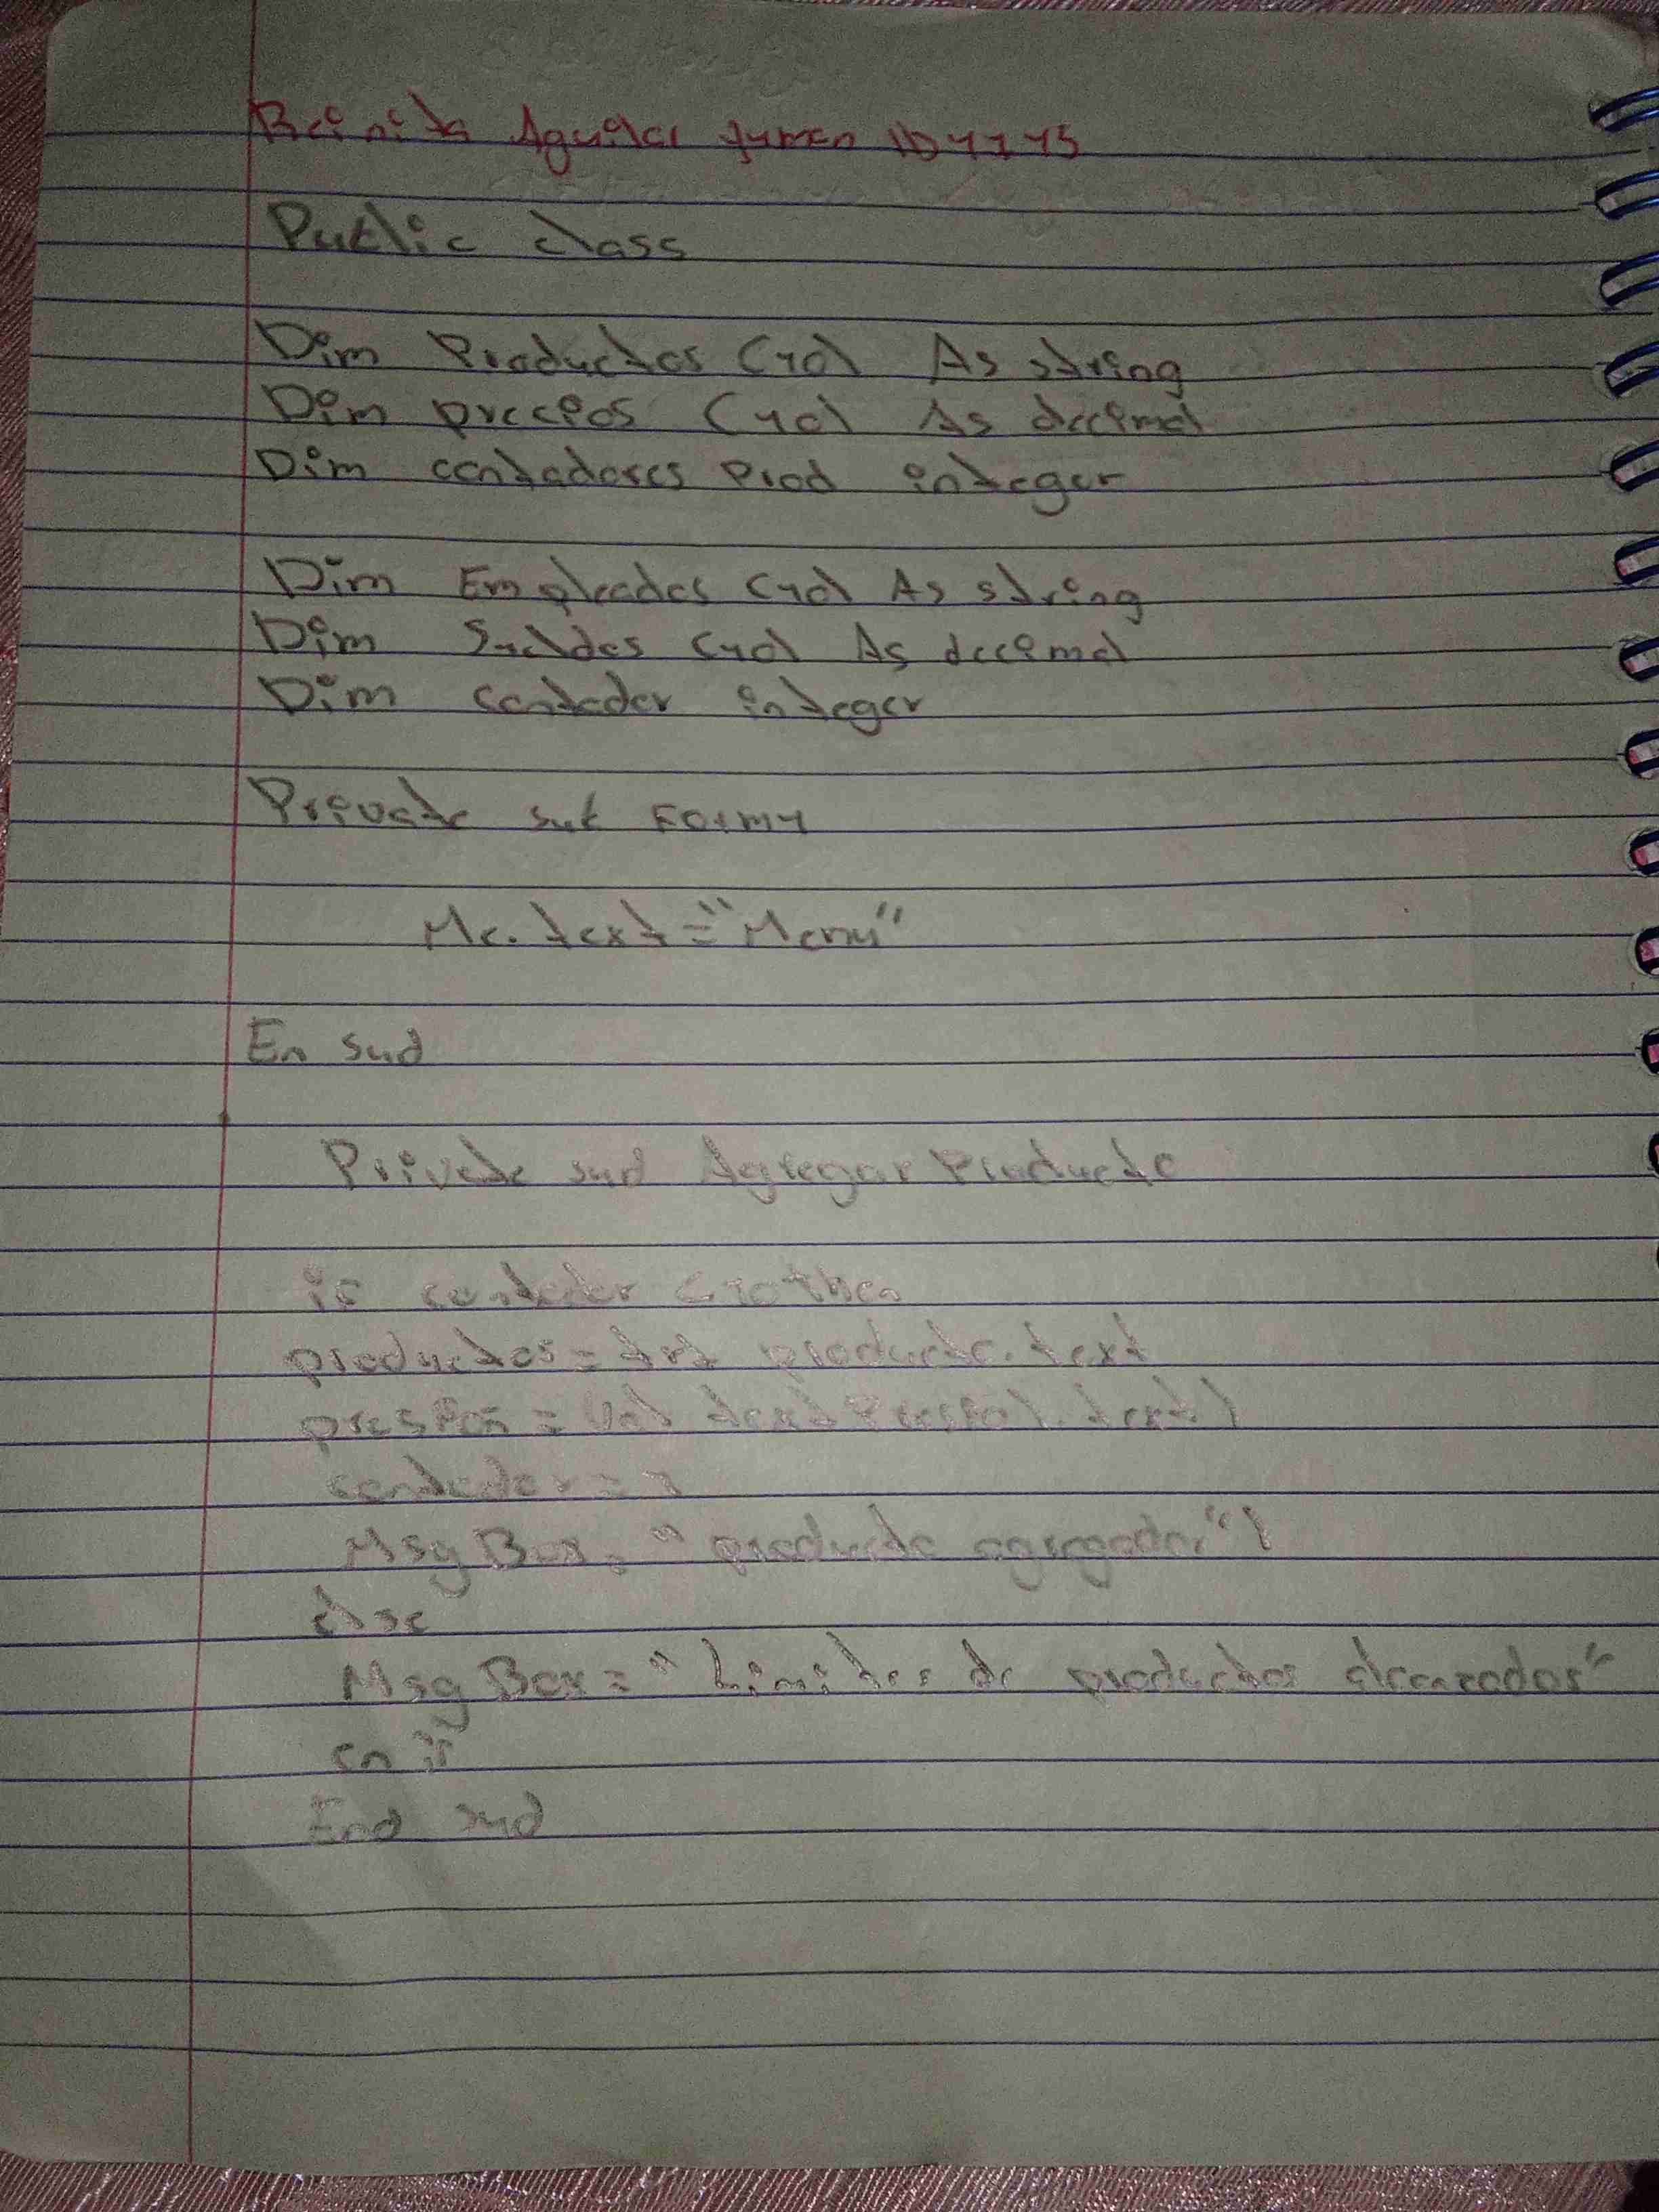 Aguilar
Public class
Dim Productos (40) As string
Dim precios (40) As decimal
Dim contadores Prod integer
Dim Empleados (40) As string
Dim Sueldos (40) As decimal
Dim contador integer
Private sub Form1
Me.text="Menu"
En sud
Private sud Agregar Producto
if contador then
productos = txt producto.text
contador =
Msg Box = "producto agregado
else
Msg Box = "Limites de productos alcanzados"
en if
End sud